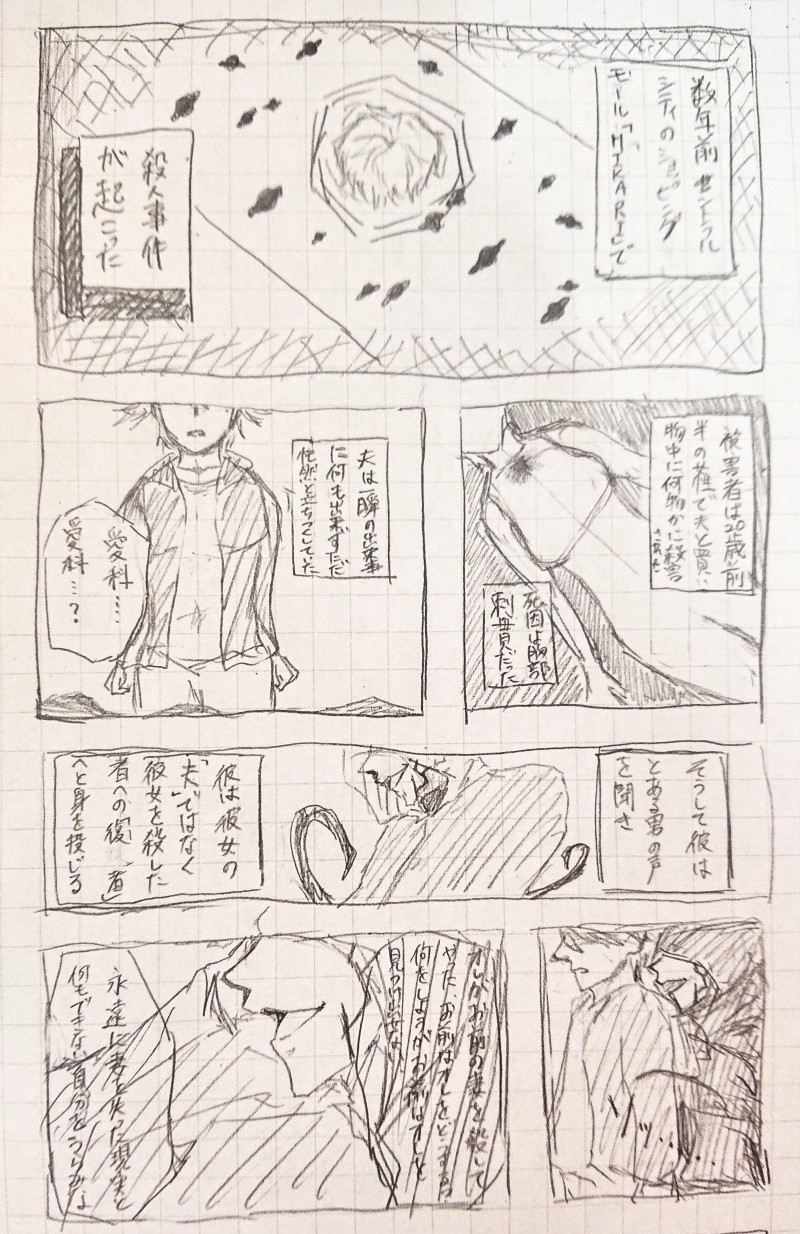 数年前 セントラル
シティのショッピング
モール「HIKARI」で
殺人事件
が起こった
被害者は20歳前
半の で夫と買い
物中に何物かに殺害
された
死因は胸部
刺貫だった
夫は一瞬の出来事
に何も出来ずただ
然と立ちつくしていた
愛科…
愛科…?
そうして彼は
とある男の声
を聞き
彼は彼女の
「夫」ではなく
彼女を殺した
者への「復 者」
へと身を投じる
ソッ……
オレがお前の妻を殺して
やった、お前はオレをどうする
何をしようがお前はオレを
見つけ出せない
永遠に妻を失った現実と
何もできない自分をうらみな